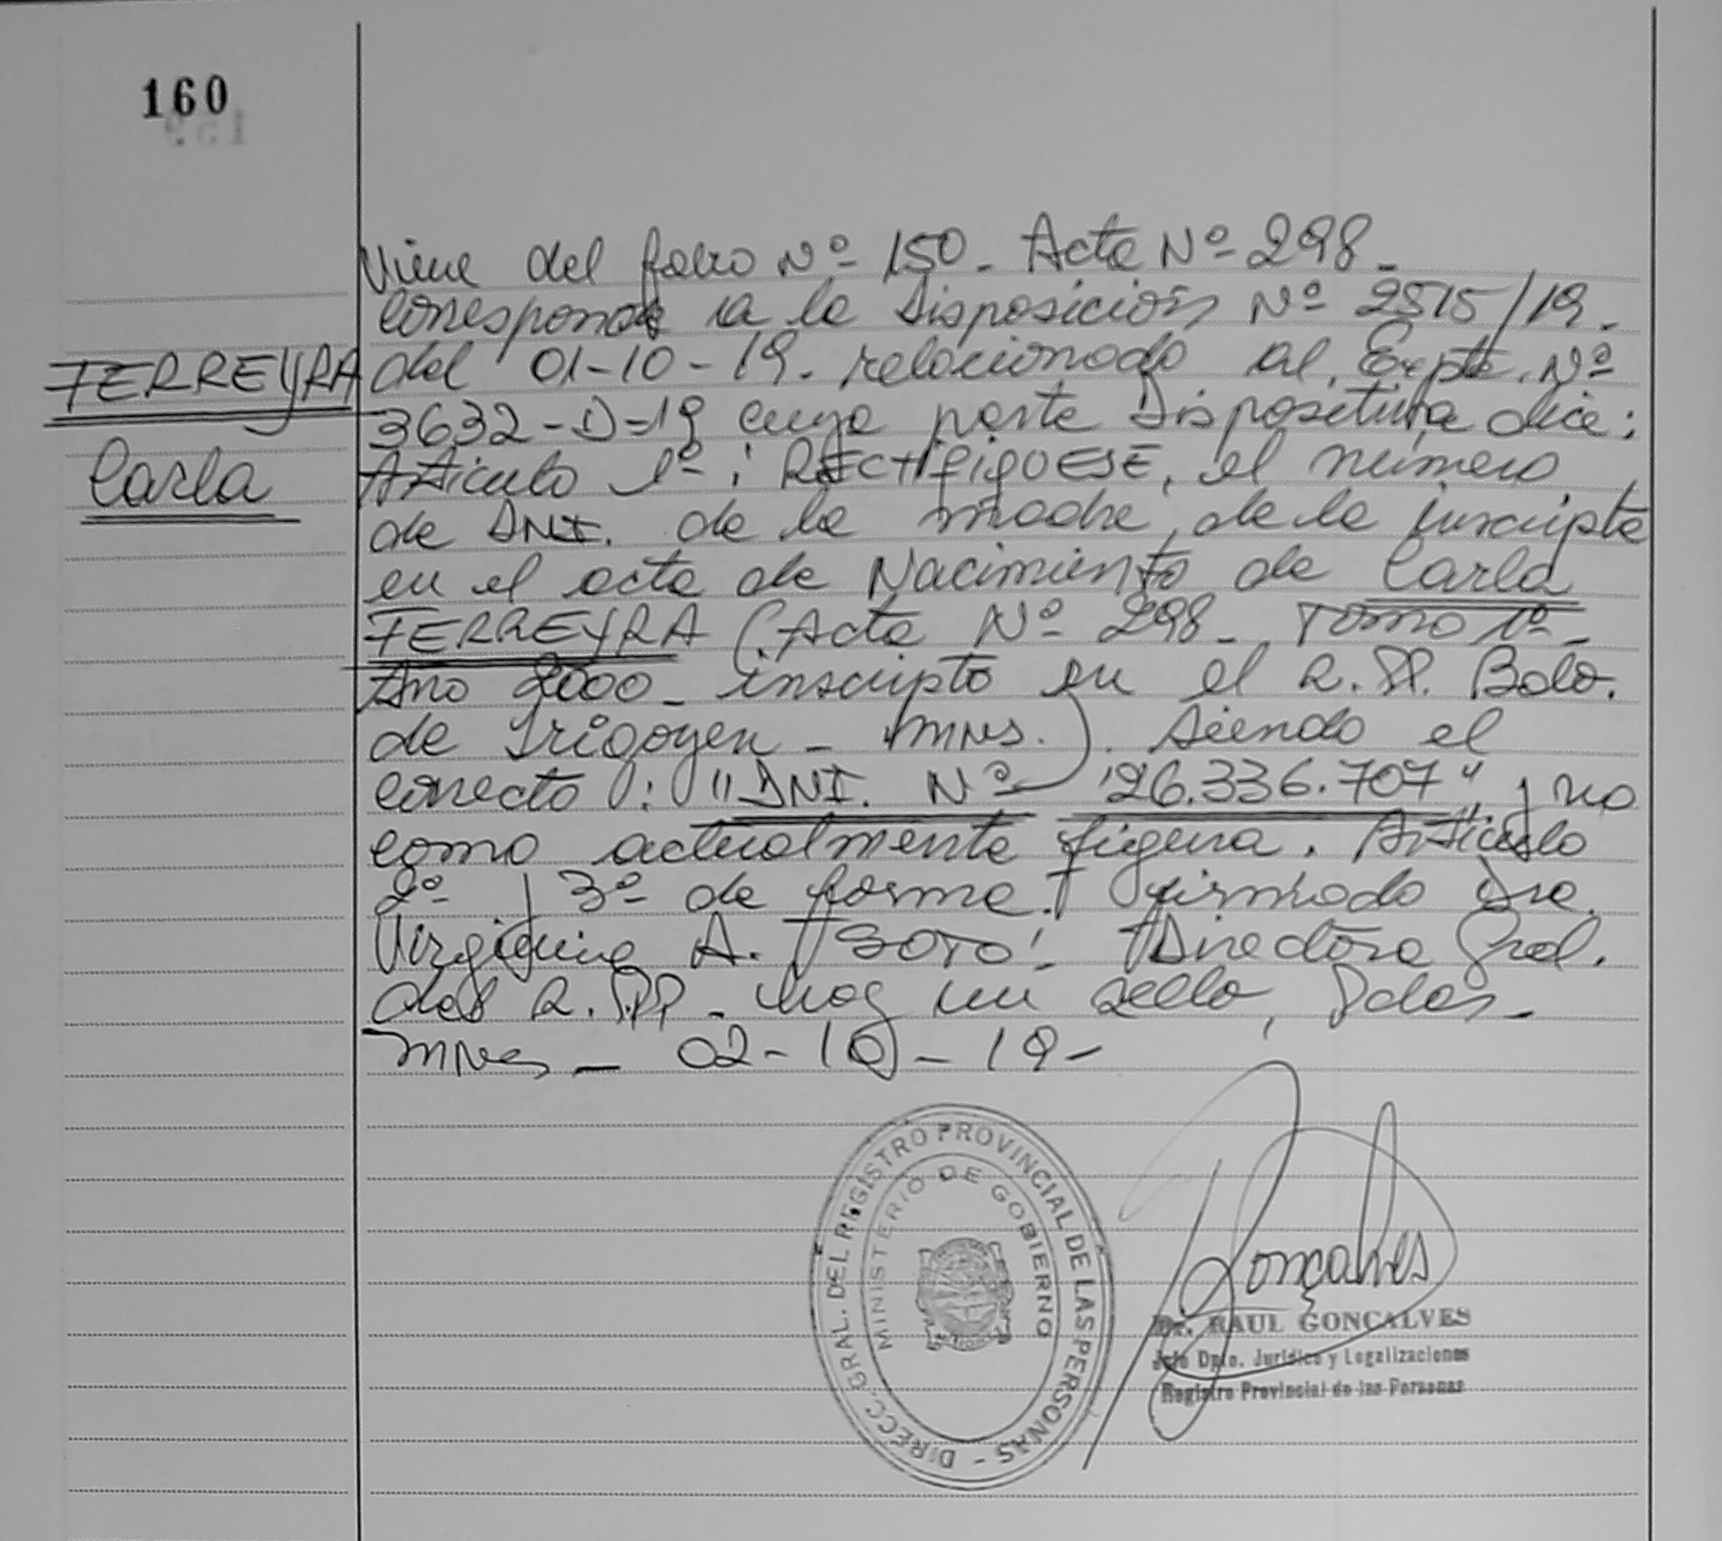 160
Viene del folio Nº 150 - Acta Nº 298 -
Corresponde a la Disposición Nº 2515/19.
FERREYRA
Carla
del 01-10-19. relacionado al Expte. Nº
3632-D-19 cuya parte Dispositiva dice:
Artículo 1º: RECTIFIQUESE, el número
de DNI. de la madre, de la inscripta
en el acta de Nacimiento de Carla
FERREYRA (Acta Nº 298 - Tomo 1º -
Año 2000 - inscripto en el R.PP. Bdo.
de Irigoyen - Mnes.). Siendo el
correcto: "DNI. Nº 26.336.707" y no
como actualmente figura. Artículo
2º y 3º de forma. Firmado Dra.
Virginia A. SOTO - Directora Gral.
del R.PP - hay un sello, Pdas -
Mnes - 02-10-19 -
DIRECC. GRAL. DEL REGISTRO PROVINCIAL DE LAS PERSONAS -
MINISTERIO DE GOBIERNO
Gonçalves
Dr. RAUL GONCALVES
Jefe Dpto. Jurídico y Legalizaciones
Registro Provincial de las Personas